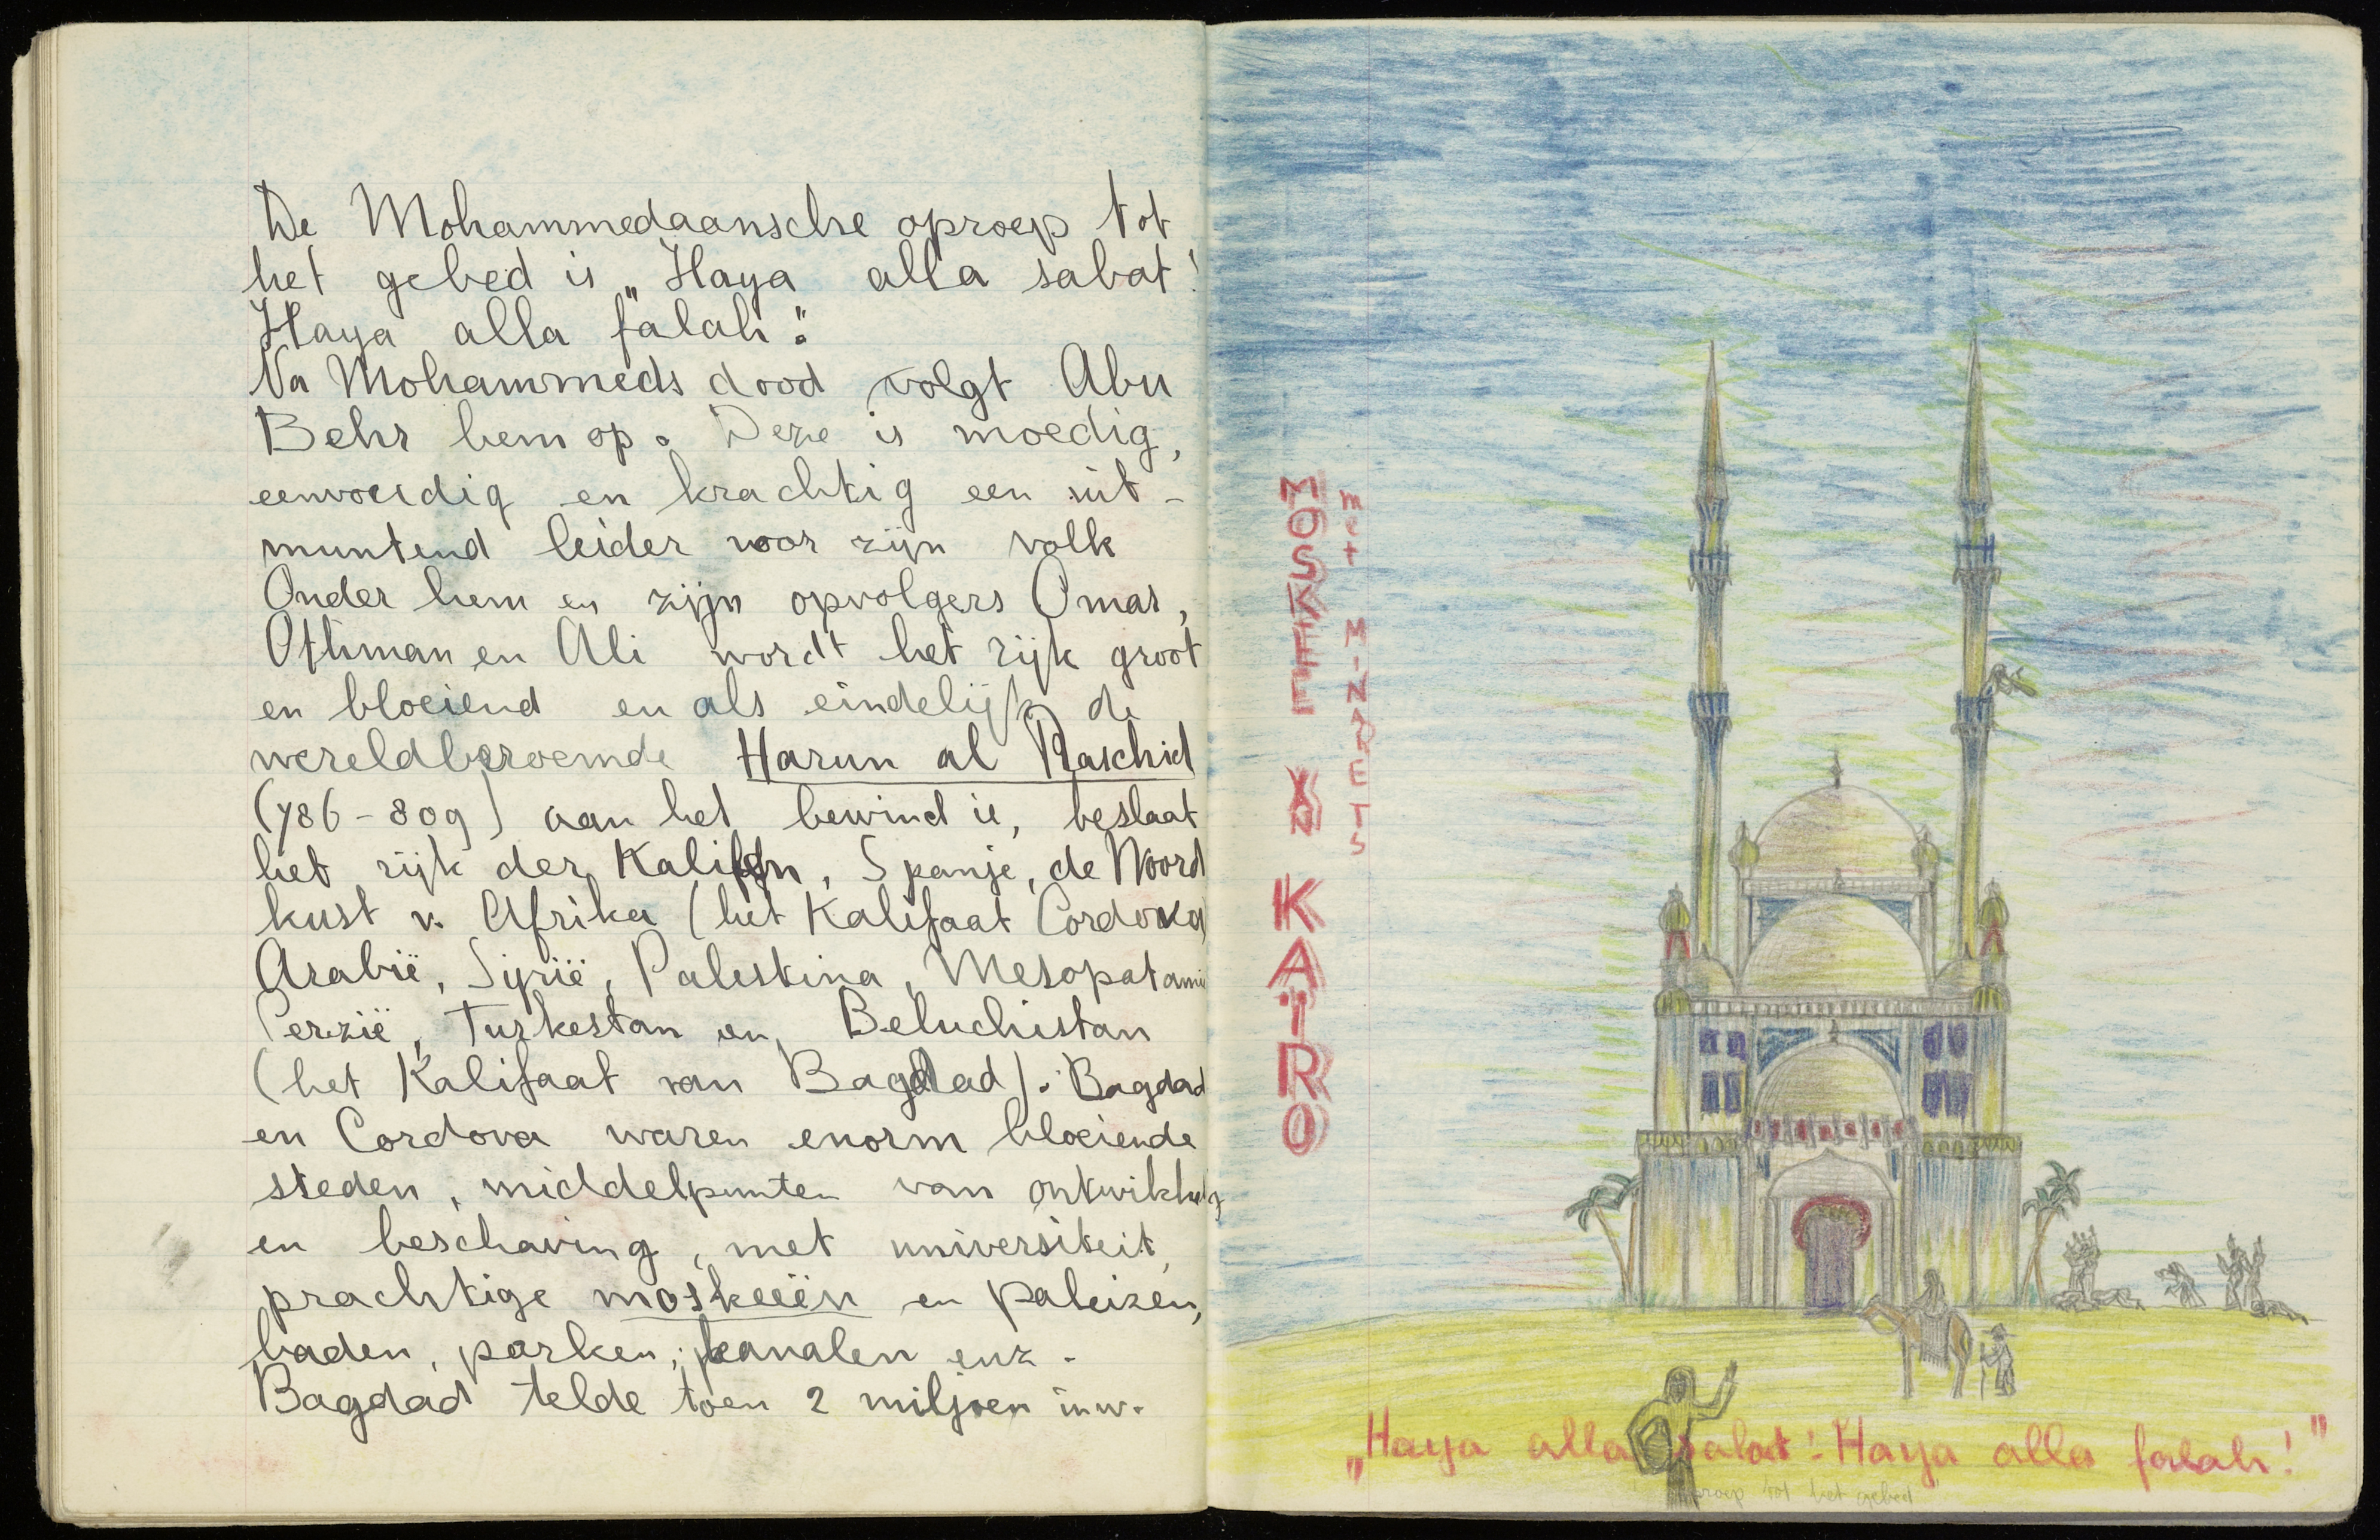 De Mohammedaansche oproep tot
het gebed is „Haya alla sabat!
Haya alla falah".
Na Mohammeds dood volgt Abu
Behr hem op. Deze is moedig,
eenvoudig en krachtig een uit-
muntend leider voor zijn volk
Onder hem en zijn opvolgers Omar,
Othman en Ali wordt het rijk groot
en bloeiend en als eindelijk de
wereldberoemde Harun al Raschid
(786-809) aan het bewind is, beslaat
het rijk der Kalifen, Spanje, de Noord
kust v. Afrika (het Kalifaat Cordova)
Arabië, Syrië, Palestina, Mesopatamië
Perzië, Turkestan en Beluchistan
(het Kalifaat van Bagdad). Bagdad
en Cordova waren enorm bloeiende
steden, middelpunten van ontwikkeling
en beschaving, met universiteit,
prachtige moskeeën en paleizen,
baden, parken, kanalen enz.
Bagdad telde toen 2 miljoen inw.
MOSKEE IN KAÏRO
met MINARETS
„Haya alla salat! Haya alla falah!"
oproep tot het gebed